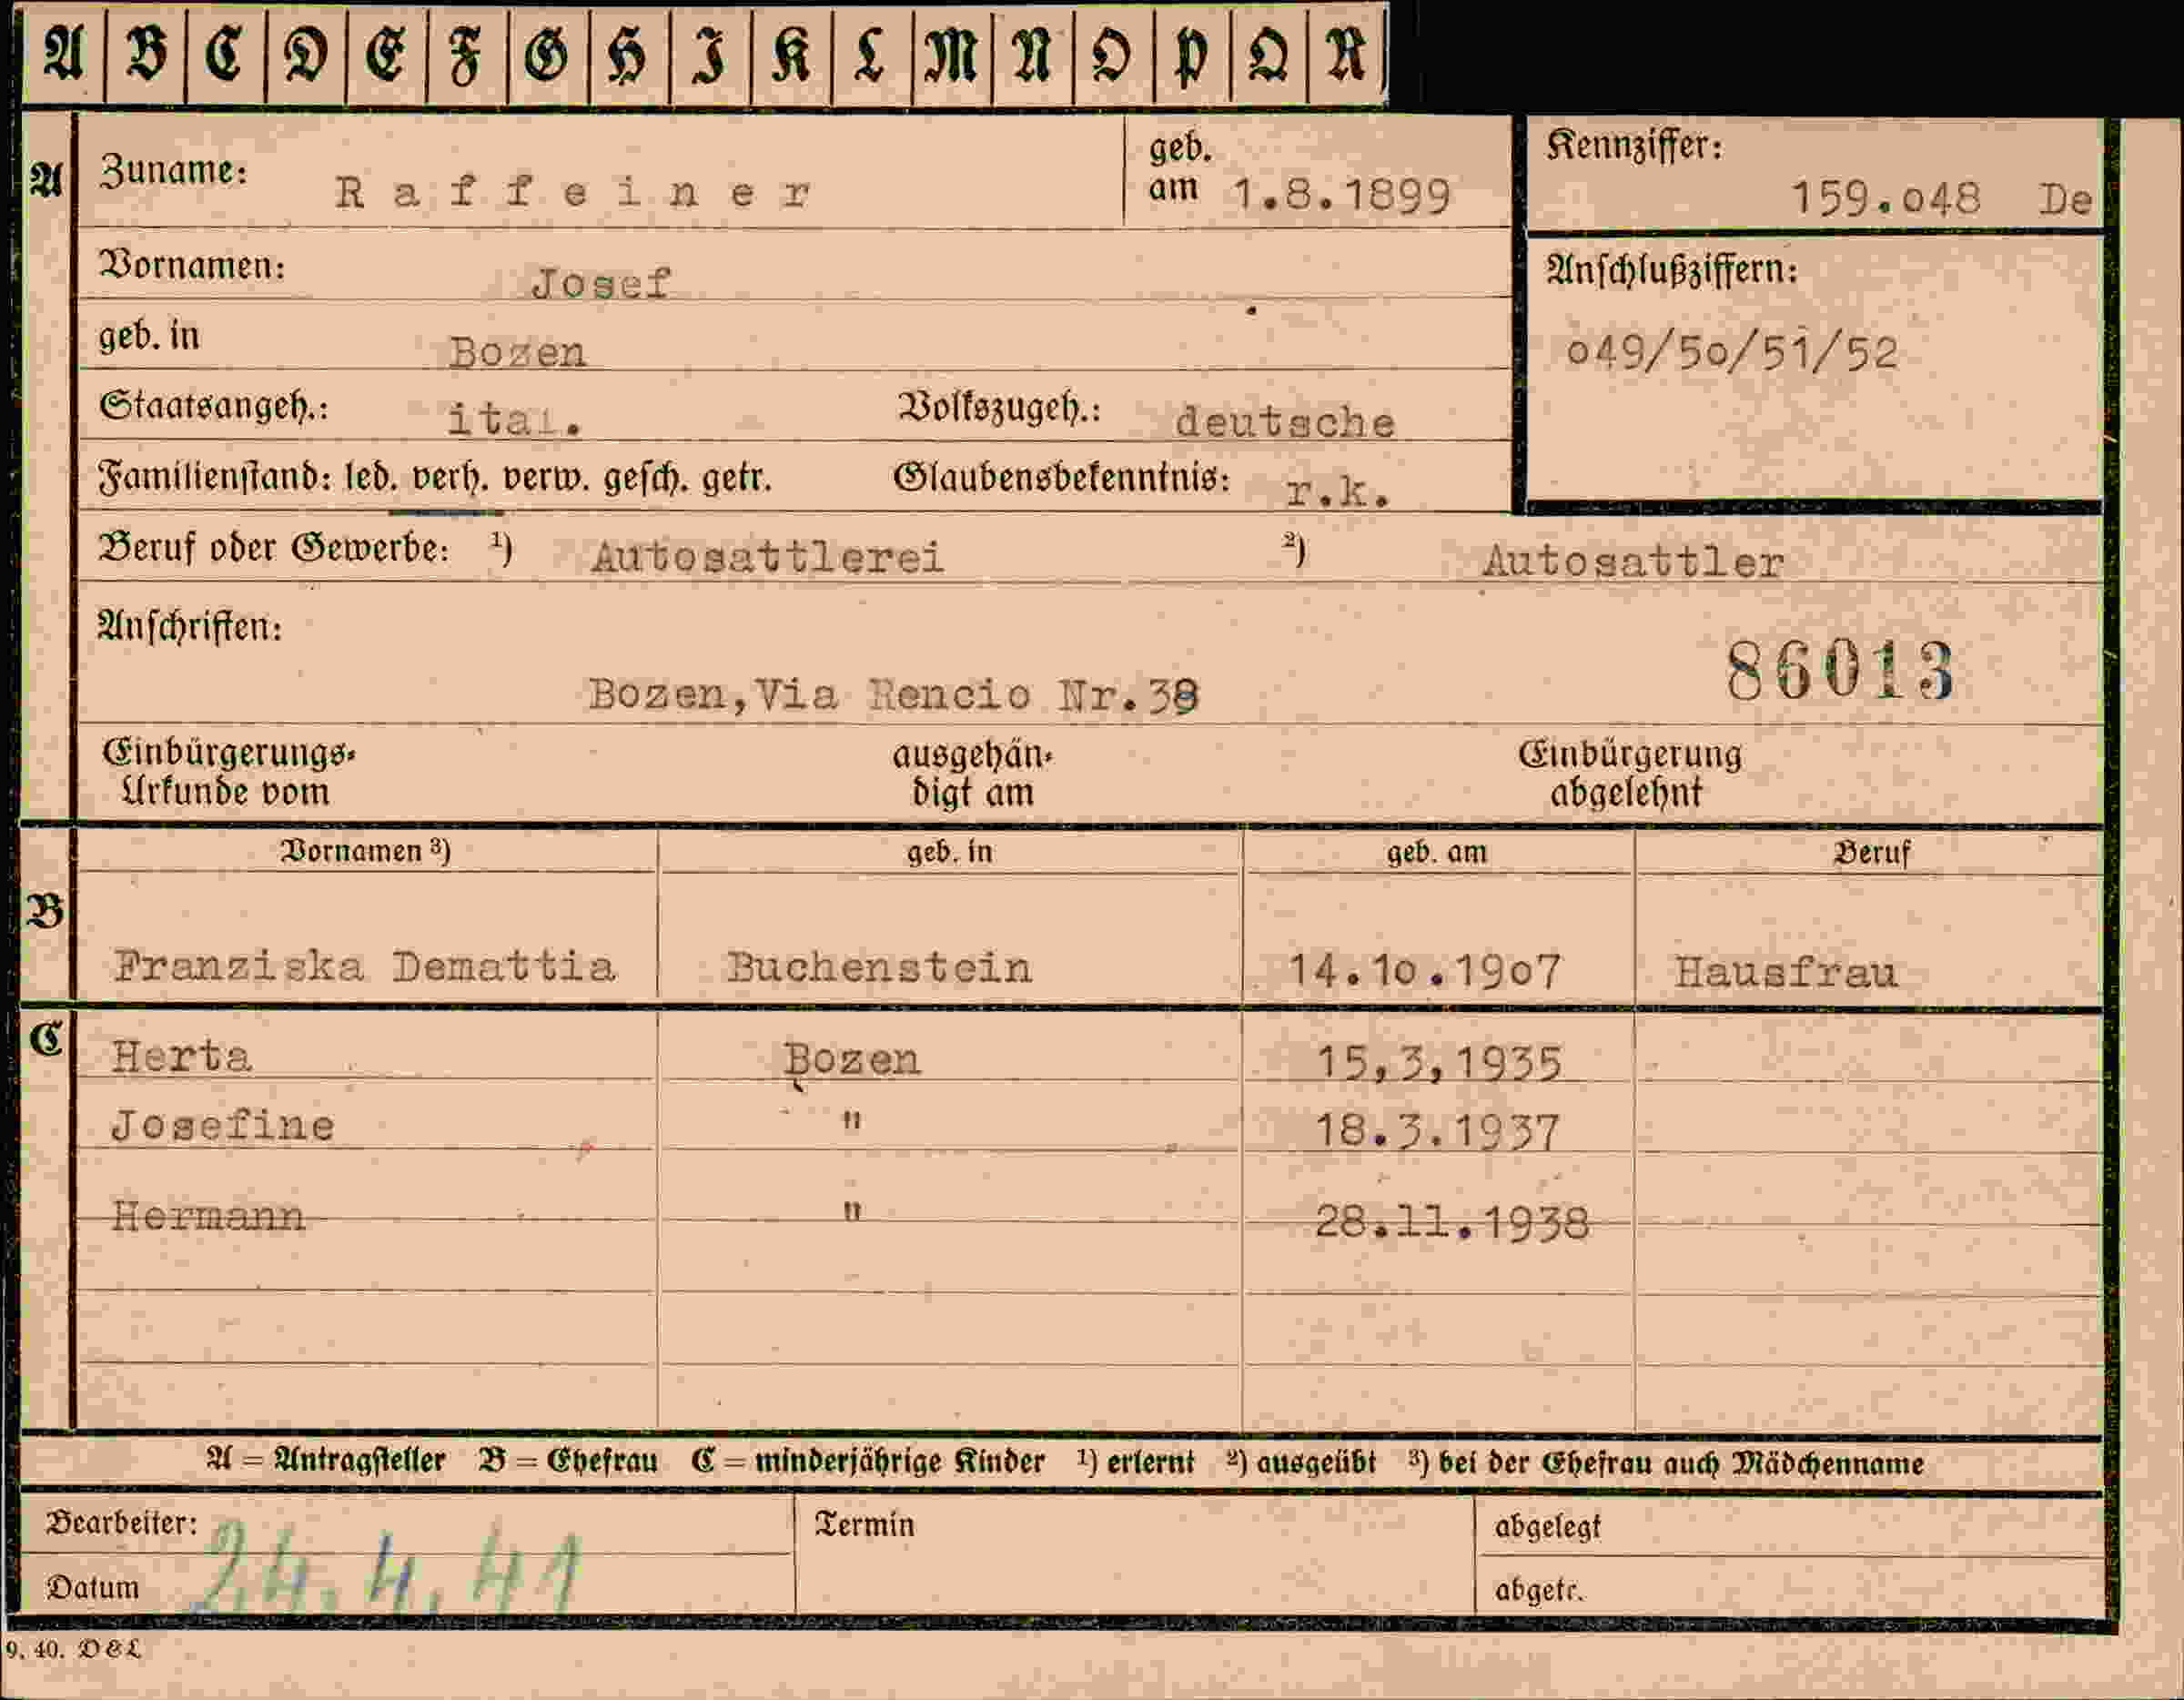 A B C D E F G H I K L M N O P Q R
A Zuname: Raffeiner geb. am 1.8.1899 Kennziffer: 159.o48 De
Vornamen: Josef Anschlußziffern:
geb. in Bozen o49/5o/51/52
Staatsangeh.: ital. Volkszugeh.: deutsche
Familienstand: led. verh. verw. gesch. getr. Glaubensbekenntnis: r.k.
Beruf oder Gewerbe: 1) Autosattlerei 2) Autosattler
Anschriften:
86013
Bozen,Via Rencio Nr.38
Einbürgerungs- ausgehän- Einbürgerung
Urkunde vom digt am abgelehnt
Vornamen 3) geb. in geb. am Beruf
B
Franziska Demattia Buchenstein 14.1o.19o7 Hausfrau
C Herta Bozen 15,3,1935
Josefine " 18.3.1937
Hermann " 28.11.1938
A = Antragsteller B = Ehefrau C = minderjährige Kinder 1) erlernt 2) ausgeübt 3) bei der Ehefrau auch Mädchenname
Bearbeiter: Termin abgelegt
Datum 24.4.41 abgetr.
9. 40. D&L